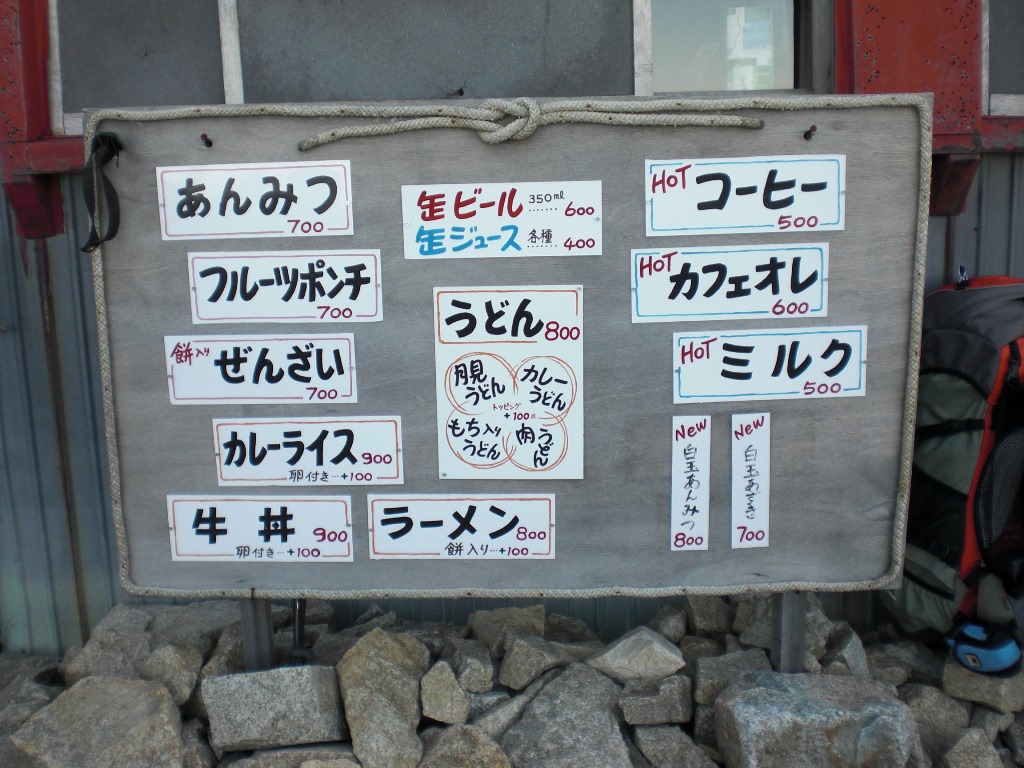 あんみつ
700
フルーツポンチ
700
餅入り ぜんざい
700
カレーライス 900
卵付き…+100
牛丼 900
卵付き…+100
ラーメン 800
餅入り…+100
缶ビール 350ml …… 600
缶ジュース 各種 …… 400
うどん 800
月見うどん
カレーうどん
トッピング
+100円
もち入りうどん
肉うどん
HOT コーヒー
500
HOT カフェオレ
600
HOT ミルク
500
New 白玉あんみつ 800
New 白玉あずき 700